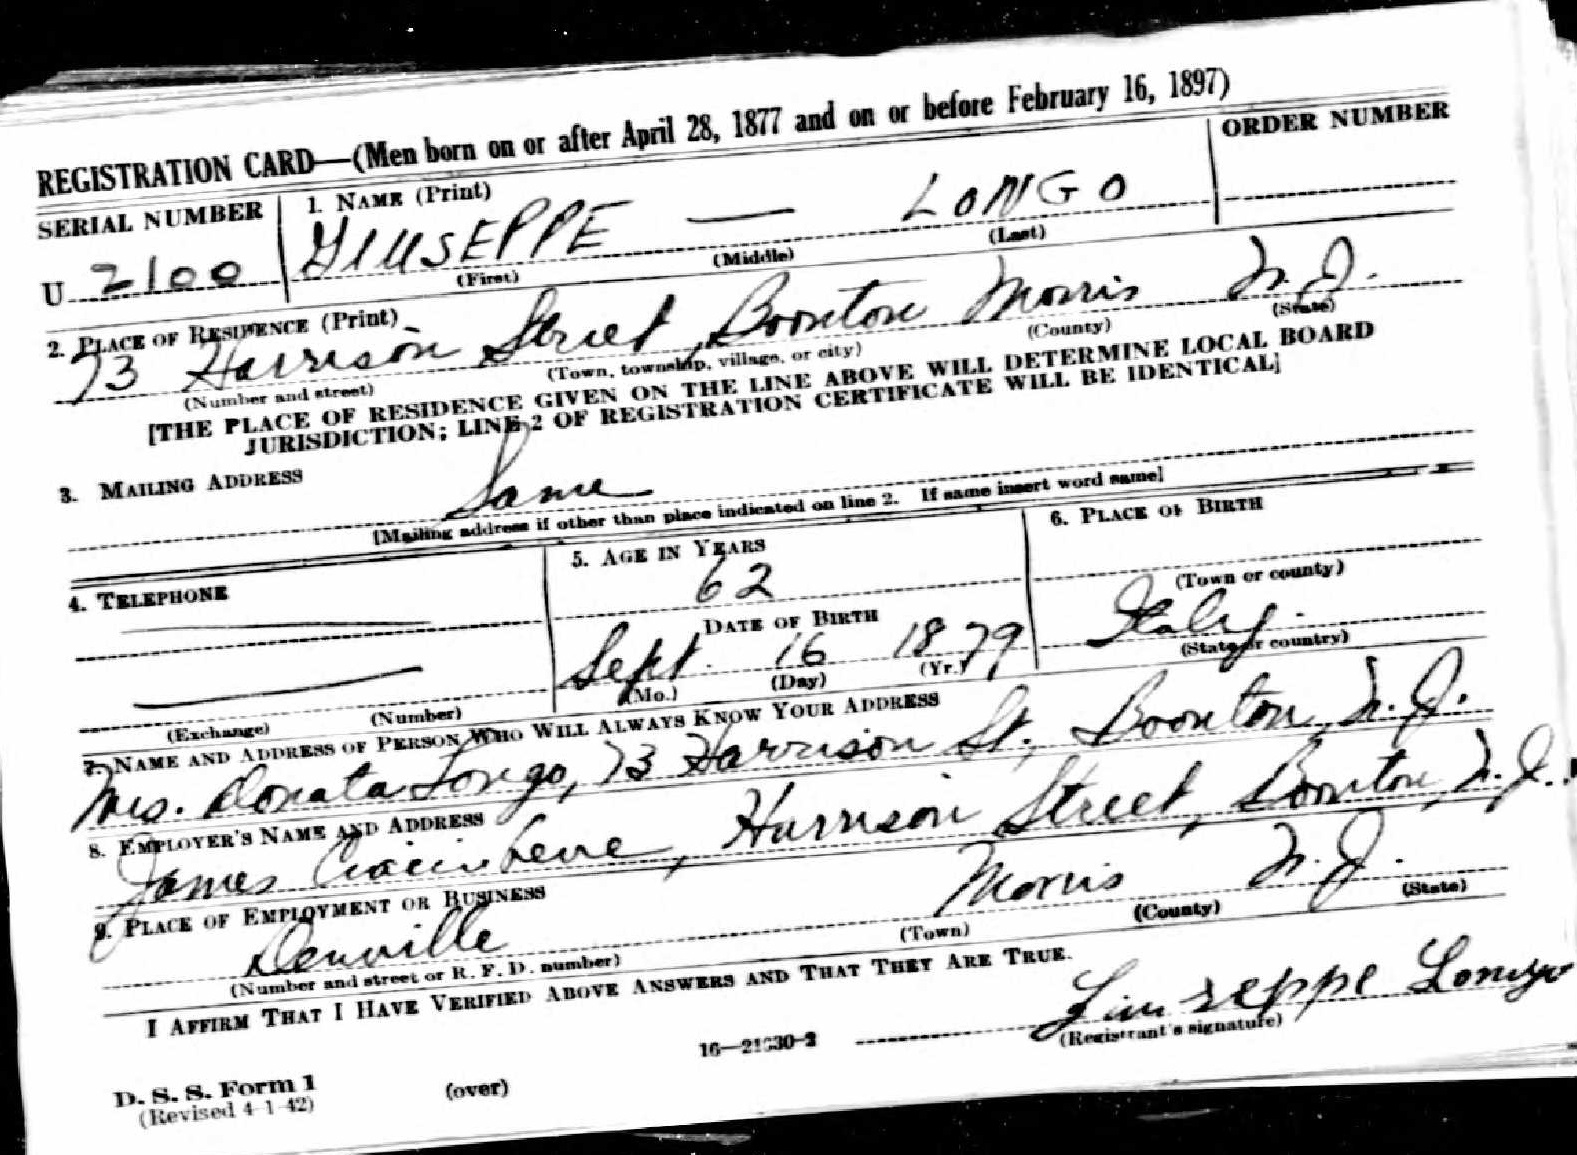 REGISTRATION CARD—(Men born on or after April 28, 1877 and on or before February 16, 1897)
SERIAL NUMBER
1. NAME (Print)
ORDER NUMBER
U 2100
GIUSEPPE — LONGO
(First) (Middle) (Last)
2. PLACE OF RESIDENCE (Print)
73 Harrison Street, Boonton Morris N.J.
(Number and street) (Town, township, village, or city) (County) (State)
[THE PLACE OF RESIDENCE GIVEN ON THE LINE ABOVE WILL DETERMINE LOCAL BOARD
JURISDICTION; LINE 2 OF REGISTRATION CERTIFICATE WILL BE IDENTICAL]
3. MAILING ADDRESS
Same
[Mailing address if other than place indicated on line 2. If same insert word same]
4. TELEPHONE
5. AGE IN YEARS
6. PLACE OF BIRTH
62
(Town or county)
DATE OF BIRTH
Sept. 16 1879
Italy.
(Mo.) (Day) (Yr.)
(State or country)
(Exchange) (Number)
7. NAME AND ADDRESS OF PERSON WHO WILL ALWAYS KNOW YOUR ADDRESS
Mrs. Donata Longo, 73 Harrison St., Boonton, N.J.
8. EMPLOYER'S NAME AND ADDRESS
James , Harrison Street, Boonton, N.J.
9. PLACE OF EMPLOYMENT OR BUSINESS
Denville Morris N.J.
(Number and street or R. F. D. number) (Town) (County) (State)
I AFFIRM THAT I HAVE VERIFIED ABOVE ANSWERS AND THAT THEY ARE TRUE.
Giuseppe Longo
(Registrant's signature)
D. S. S. Form 1
(Revised 4-1-42)
(over)
16—21630-2